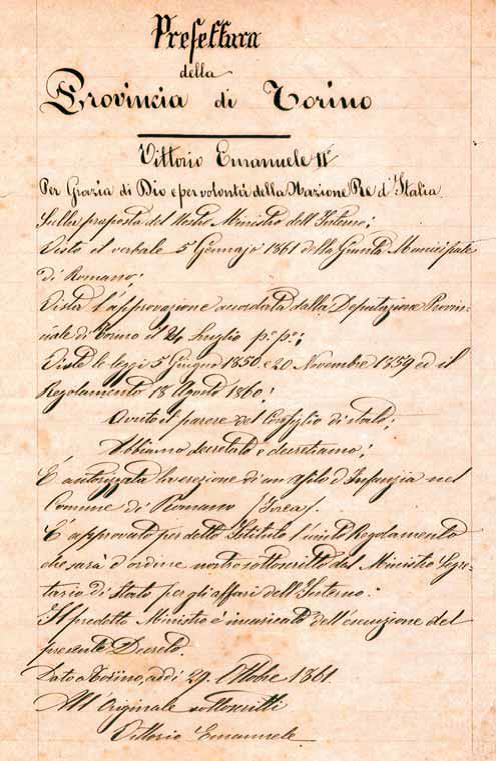 Prefettura
della
Provincia di Torino
Vittorio Emanuele II°
Per Grazia di Dio e per volontà della Nazione Re d'Italia
Sulla proposta del Nostro Ministro dell'Interno;
Visto il verbale 5 Gennajo 1861 della Giunta Municipale
di Romano;
Vista l'approvazione accordata dalla Deputazione Provin=
ciale di Torino il 24 Luglio p.° p.°;
Viste le leggi 5 Giugno 1850 e 20 Novembre 1859 ed il
Regolamento 18 Agosto 1860;
Avuto il parere del Consiglio di stato;
Abbiamo decretato e decretiamo;
È autorizzata la erezione di un Asilo d'Infanzia nel
Comune di Romano (Ivrea).
È approvato per detto Istituto l'unito Regolamento
che sarà d'ordine nostro sottoscritto dal Ministro Segre=
tario di Stato per gli affari dell'Interno.
Il predetto Ministro è incaricato dell'esecuzione del
presente Decreto.
Dato a Torino, addì 29 Ottobre 1861
All'Originale sottoscritti
Vittorio Emanuele